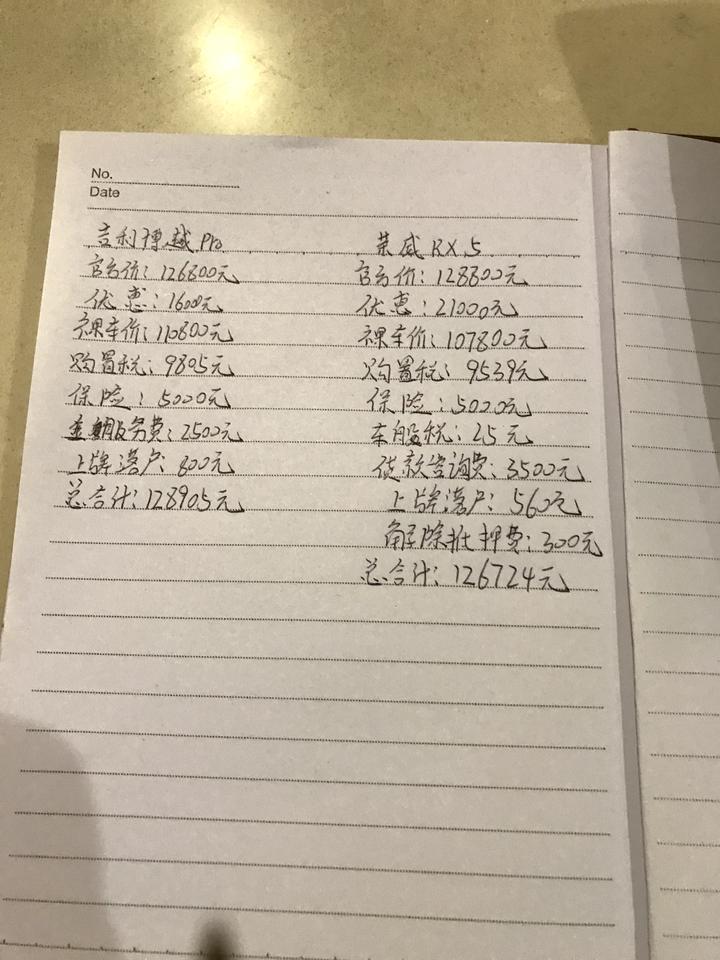 No.
Date
吉利博越Pro
官方价：126800元
优惠：16000元
裸车价：110800元
购置税：9805元
保险：5000元
金融服务费：2500元
上牌落户：800元
总合计：128905元
荣威RX5
官方价：128800元
优惠：21000元
裸车价：107800元
购置税：9539元
保险：5000元
车船税：25元
贷款咨询费：3500元
上牌落户：560元
解除抵押费：300元
总合计：126724元